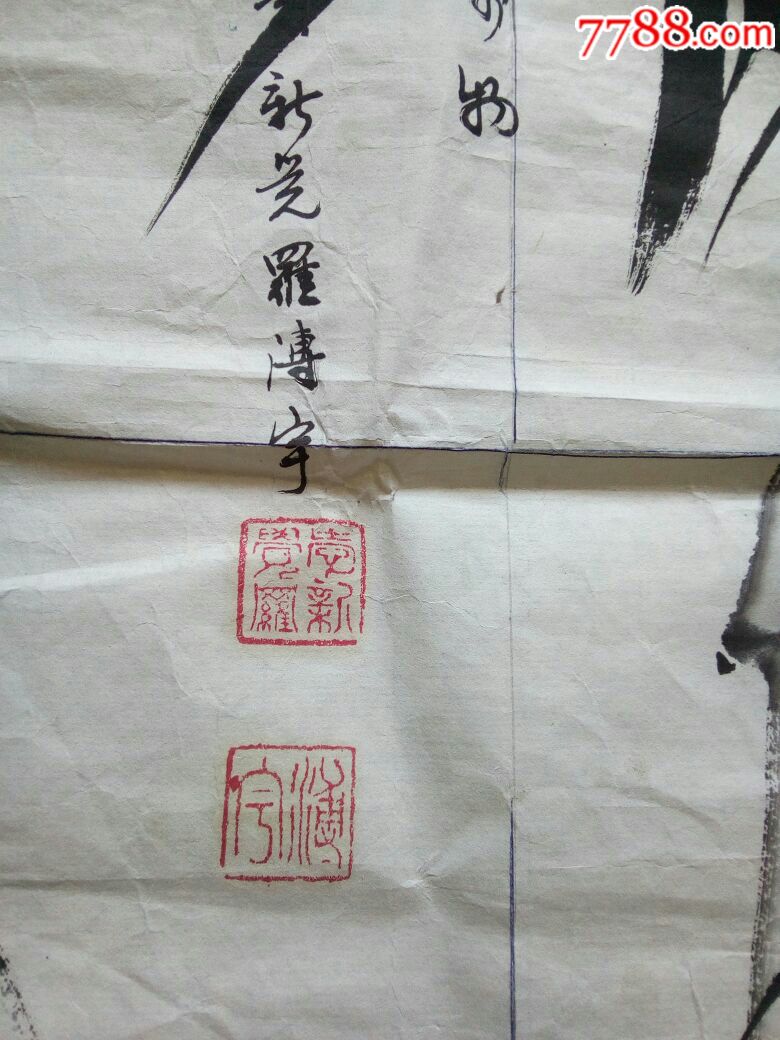 7788.com
物
新觉羅溥宇
愛新
覺羅
溥
宇